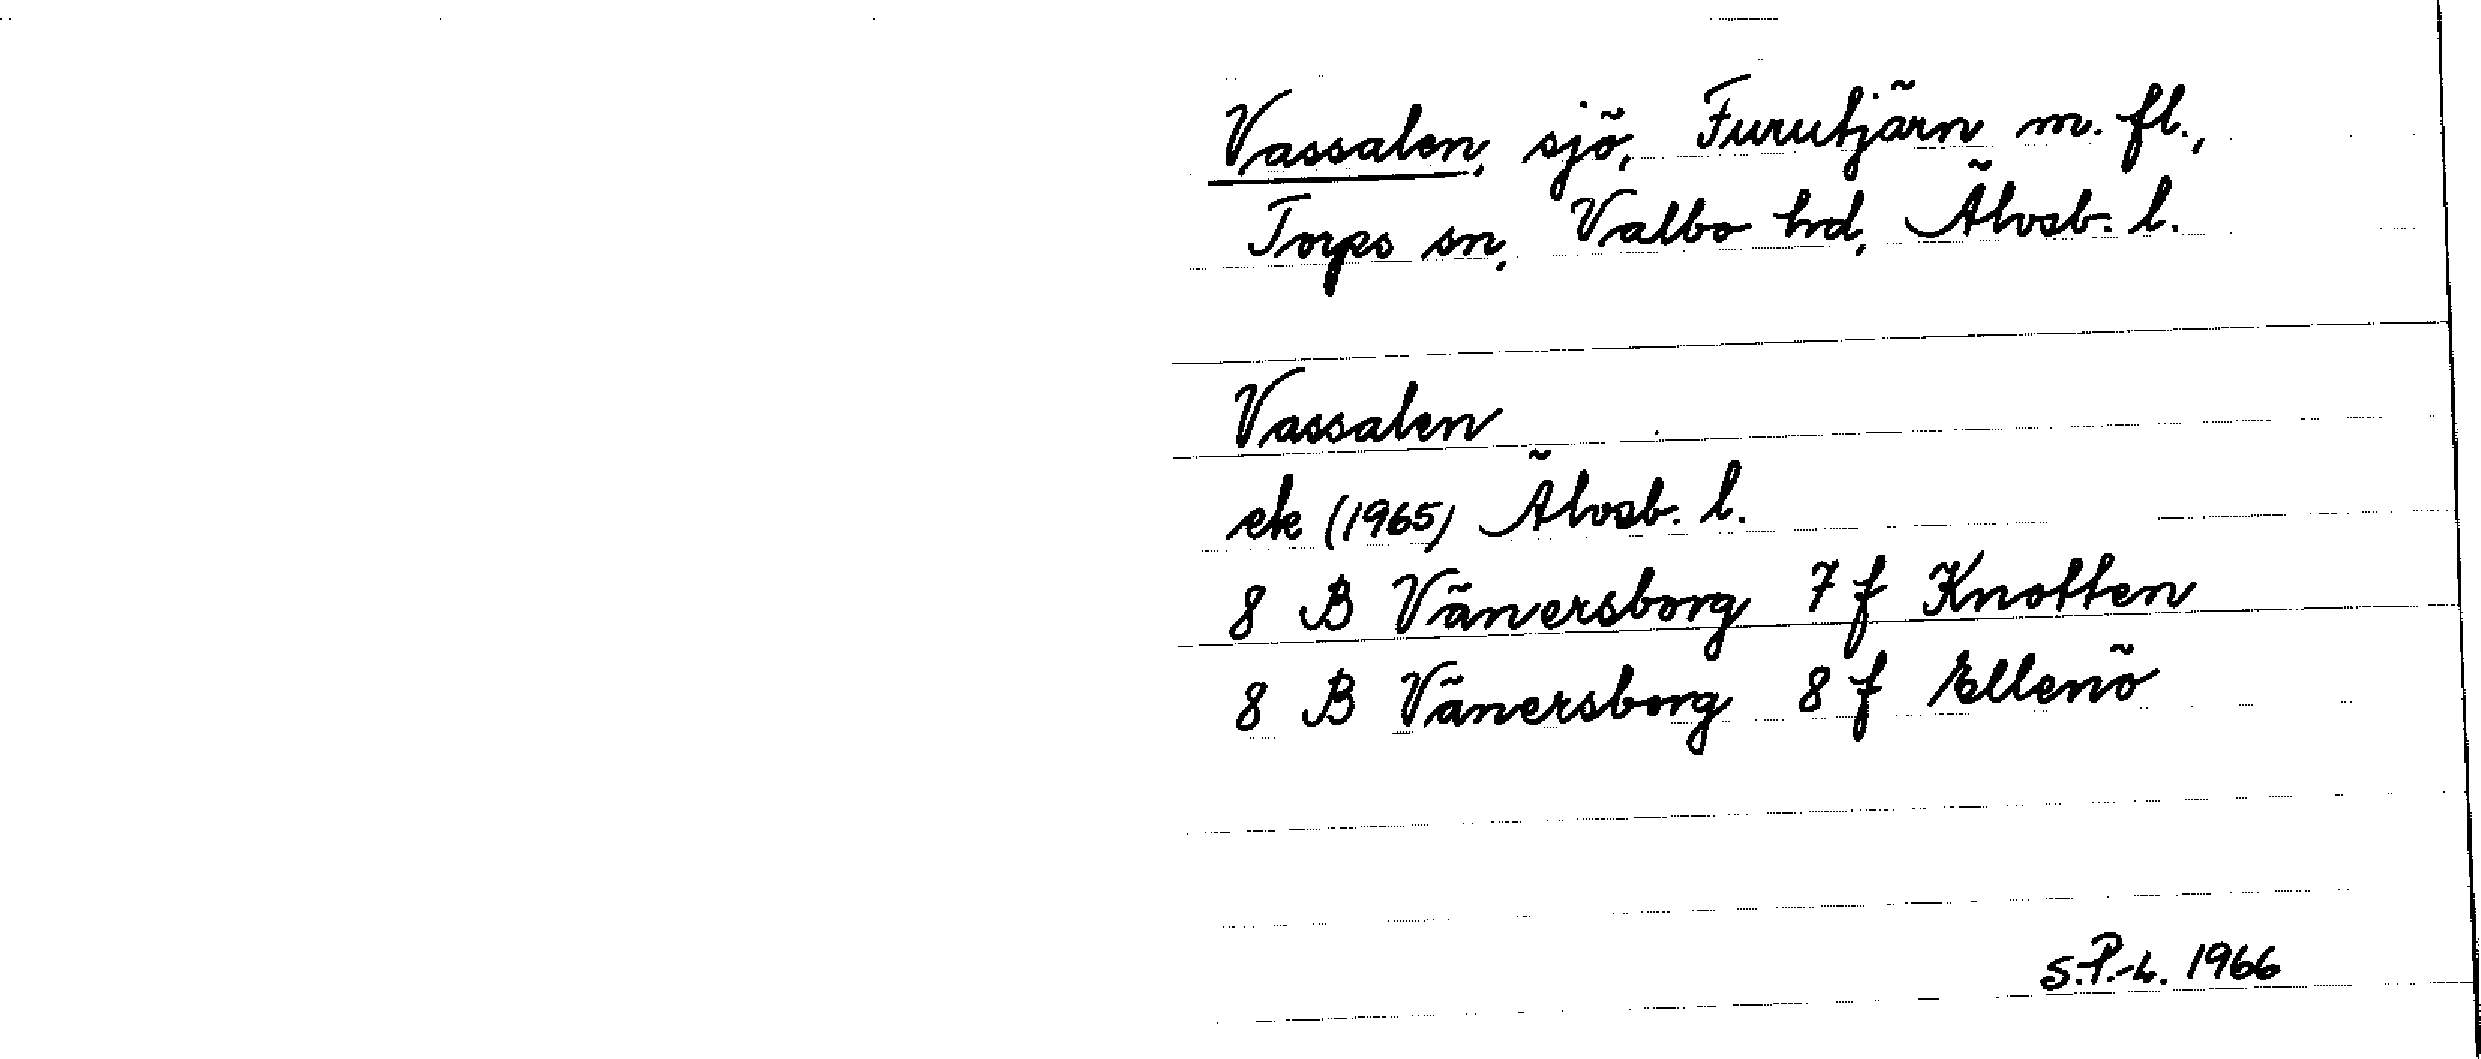 Vassalen, sjö, Furutjärn m. fl.,
Torps sn, Valbo hd, Älvsb. l.
Vassalen
ek (1965) Älvsb. l.
8 B Vänersborg 7 f Knotten
8 B Vänersborg 8 f Ellenö
S.P.-L. 1966